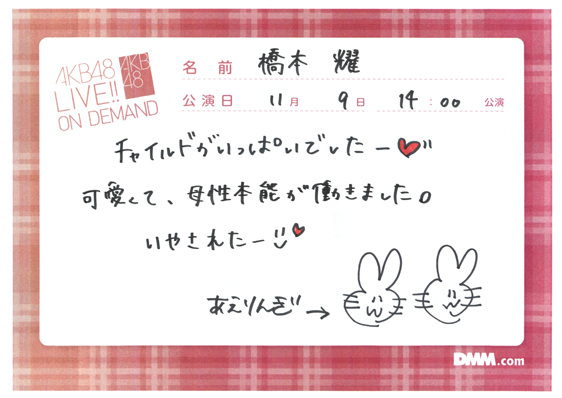 AKB48
LIVE!!
ON DEMAND
AKB
48
名 前 橋本 耀
公演日 11月 9日 14:00 公演
チャイルドがいっぱいでしたー♥
可愛くて、母性本能が働きました。
いやされたー♥
あえりんぎ→
DMM.com